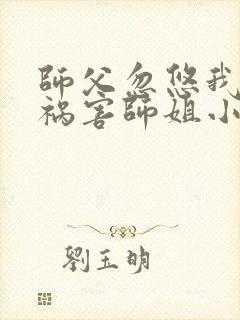 師父忽悠我
禍害師姐小
劉玉明